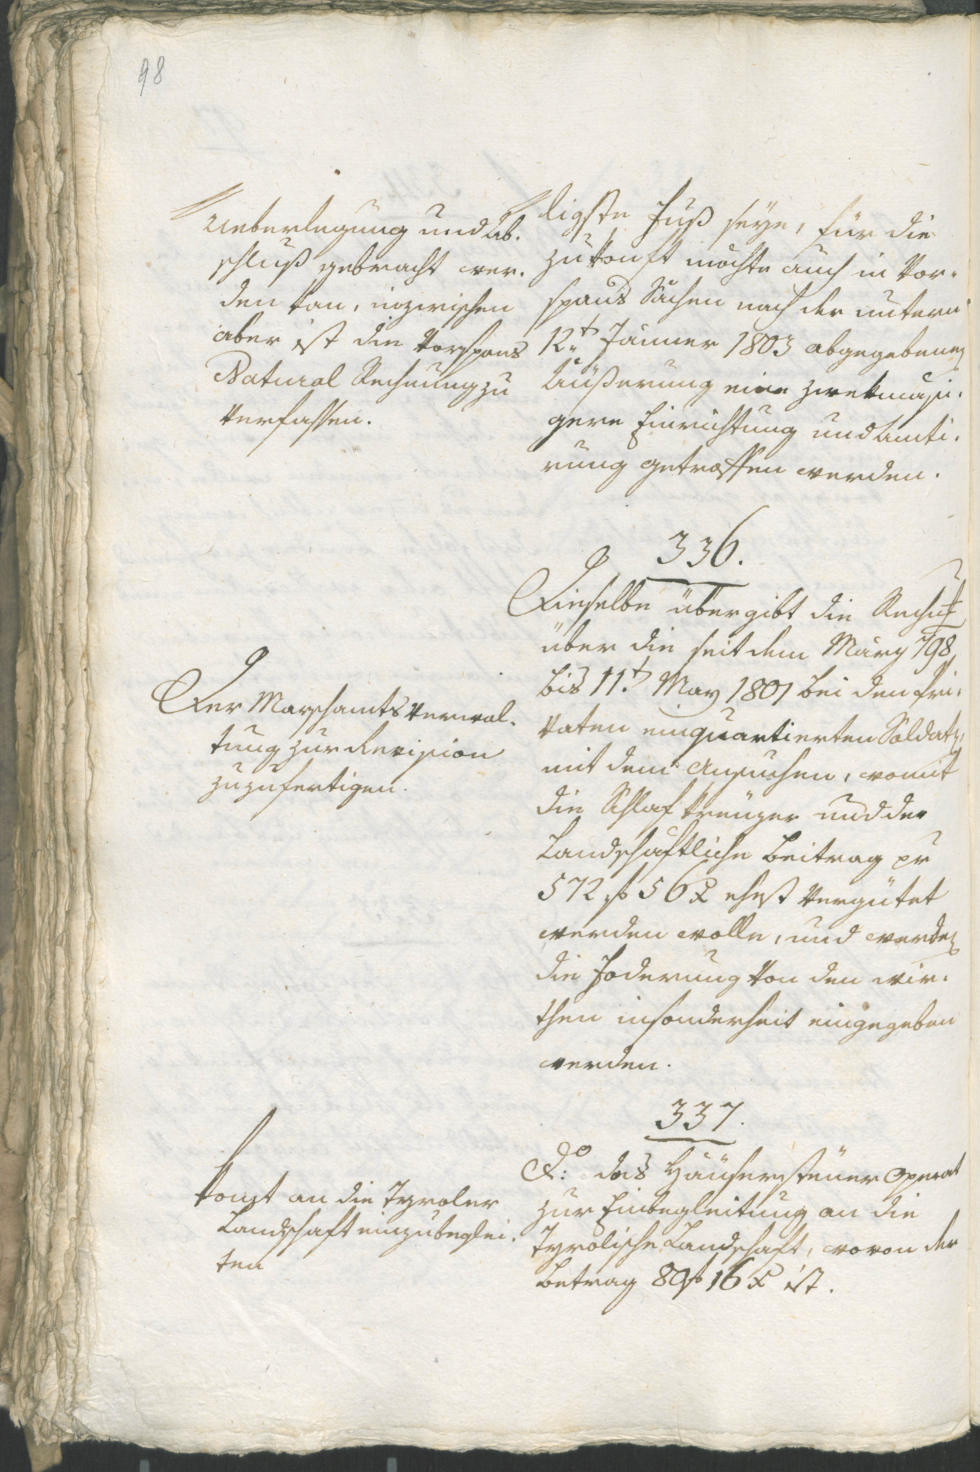 98
Ueberlegung und Ab-
schluß gebracht wer-
den kan, inzwischen
aber ist die Vorspans
Natural Rechnung zu
verfassen.
ligste Fuß seye, für die
Zukonft möchte auch in Vor-
spans Sachen nach der unterm
12.t Jänner 1803 abgegebenen
Äußerung eine zwekmäsi-
gere Einrichtung und
getroffen werden.
336.
Dieselbe übergibt die Rechnung
über die seit dem März 798
bis 11.t May 1801 bei den Pri-
vaten einquartierten Soldaten,
mit dem Ansuchen, womit
die Schlafkreuzer und der
Landschaftliche Beitrag pr
572 f 56 x ehest vergütet
werden wolle, und werden
die Foderung von den Wir-
then insonderheit eingegeben
werden.
Der Marschamtsverwal-
tung zur Revision
zuzufertigen.
337.
do: das Häusersteuer Operat
zur Einbegleitung an die
Tyrolische Landschaft, wovon der
Betrag 89 f 16 x ist.
komt an die Tyroler
Landschaft einzubeglei-
ten